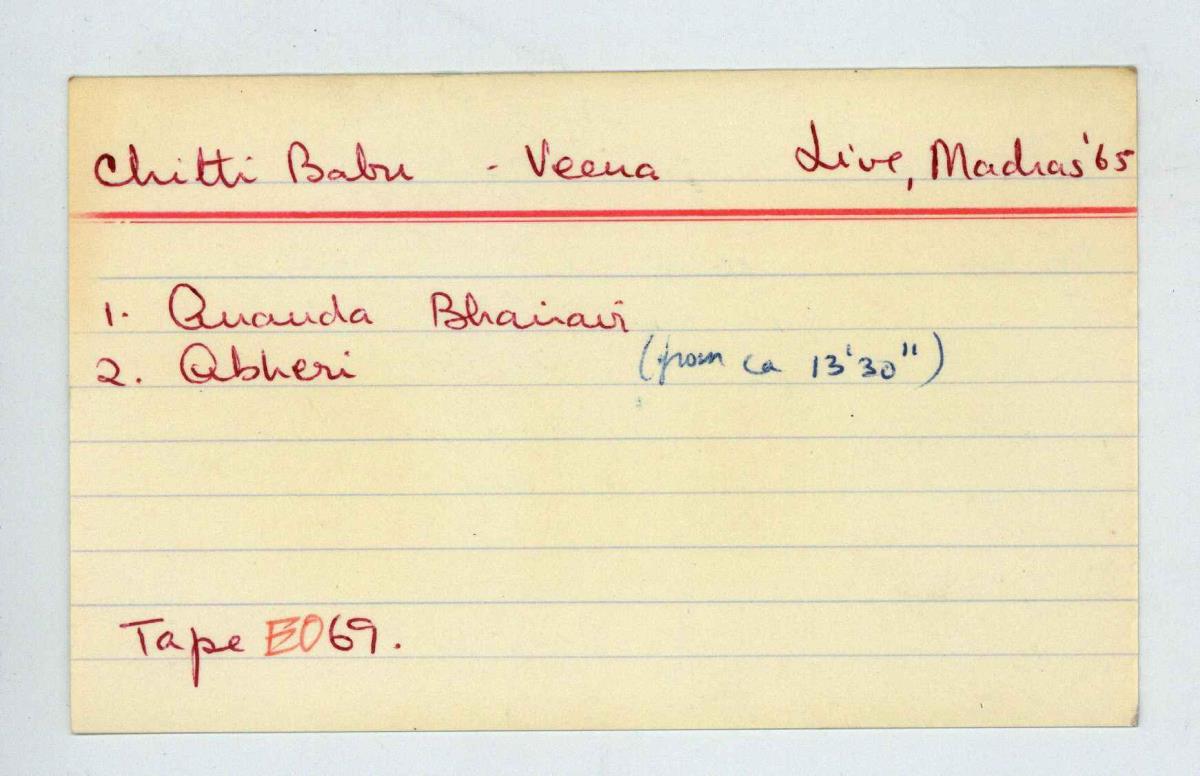 Chitti Babu - Veena Live, Madras '65
1. Ananda Bhairavi
2. Abheri (from ca 13'30")
Tape E069.